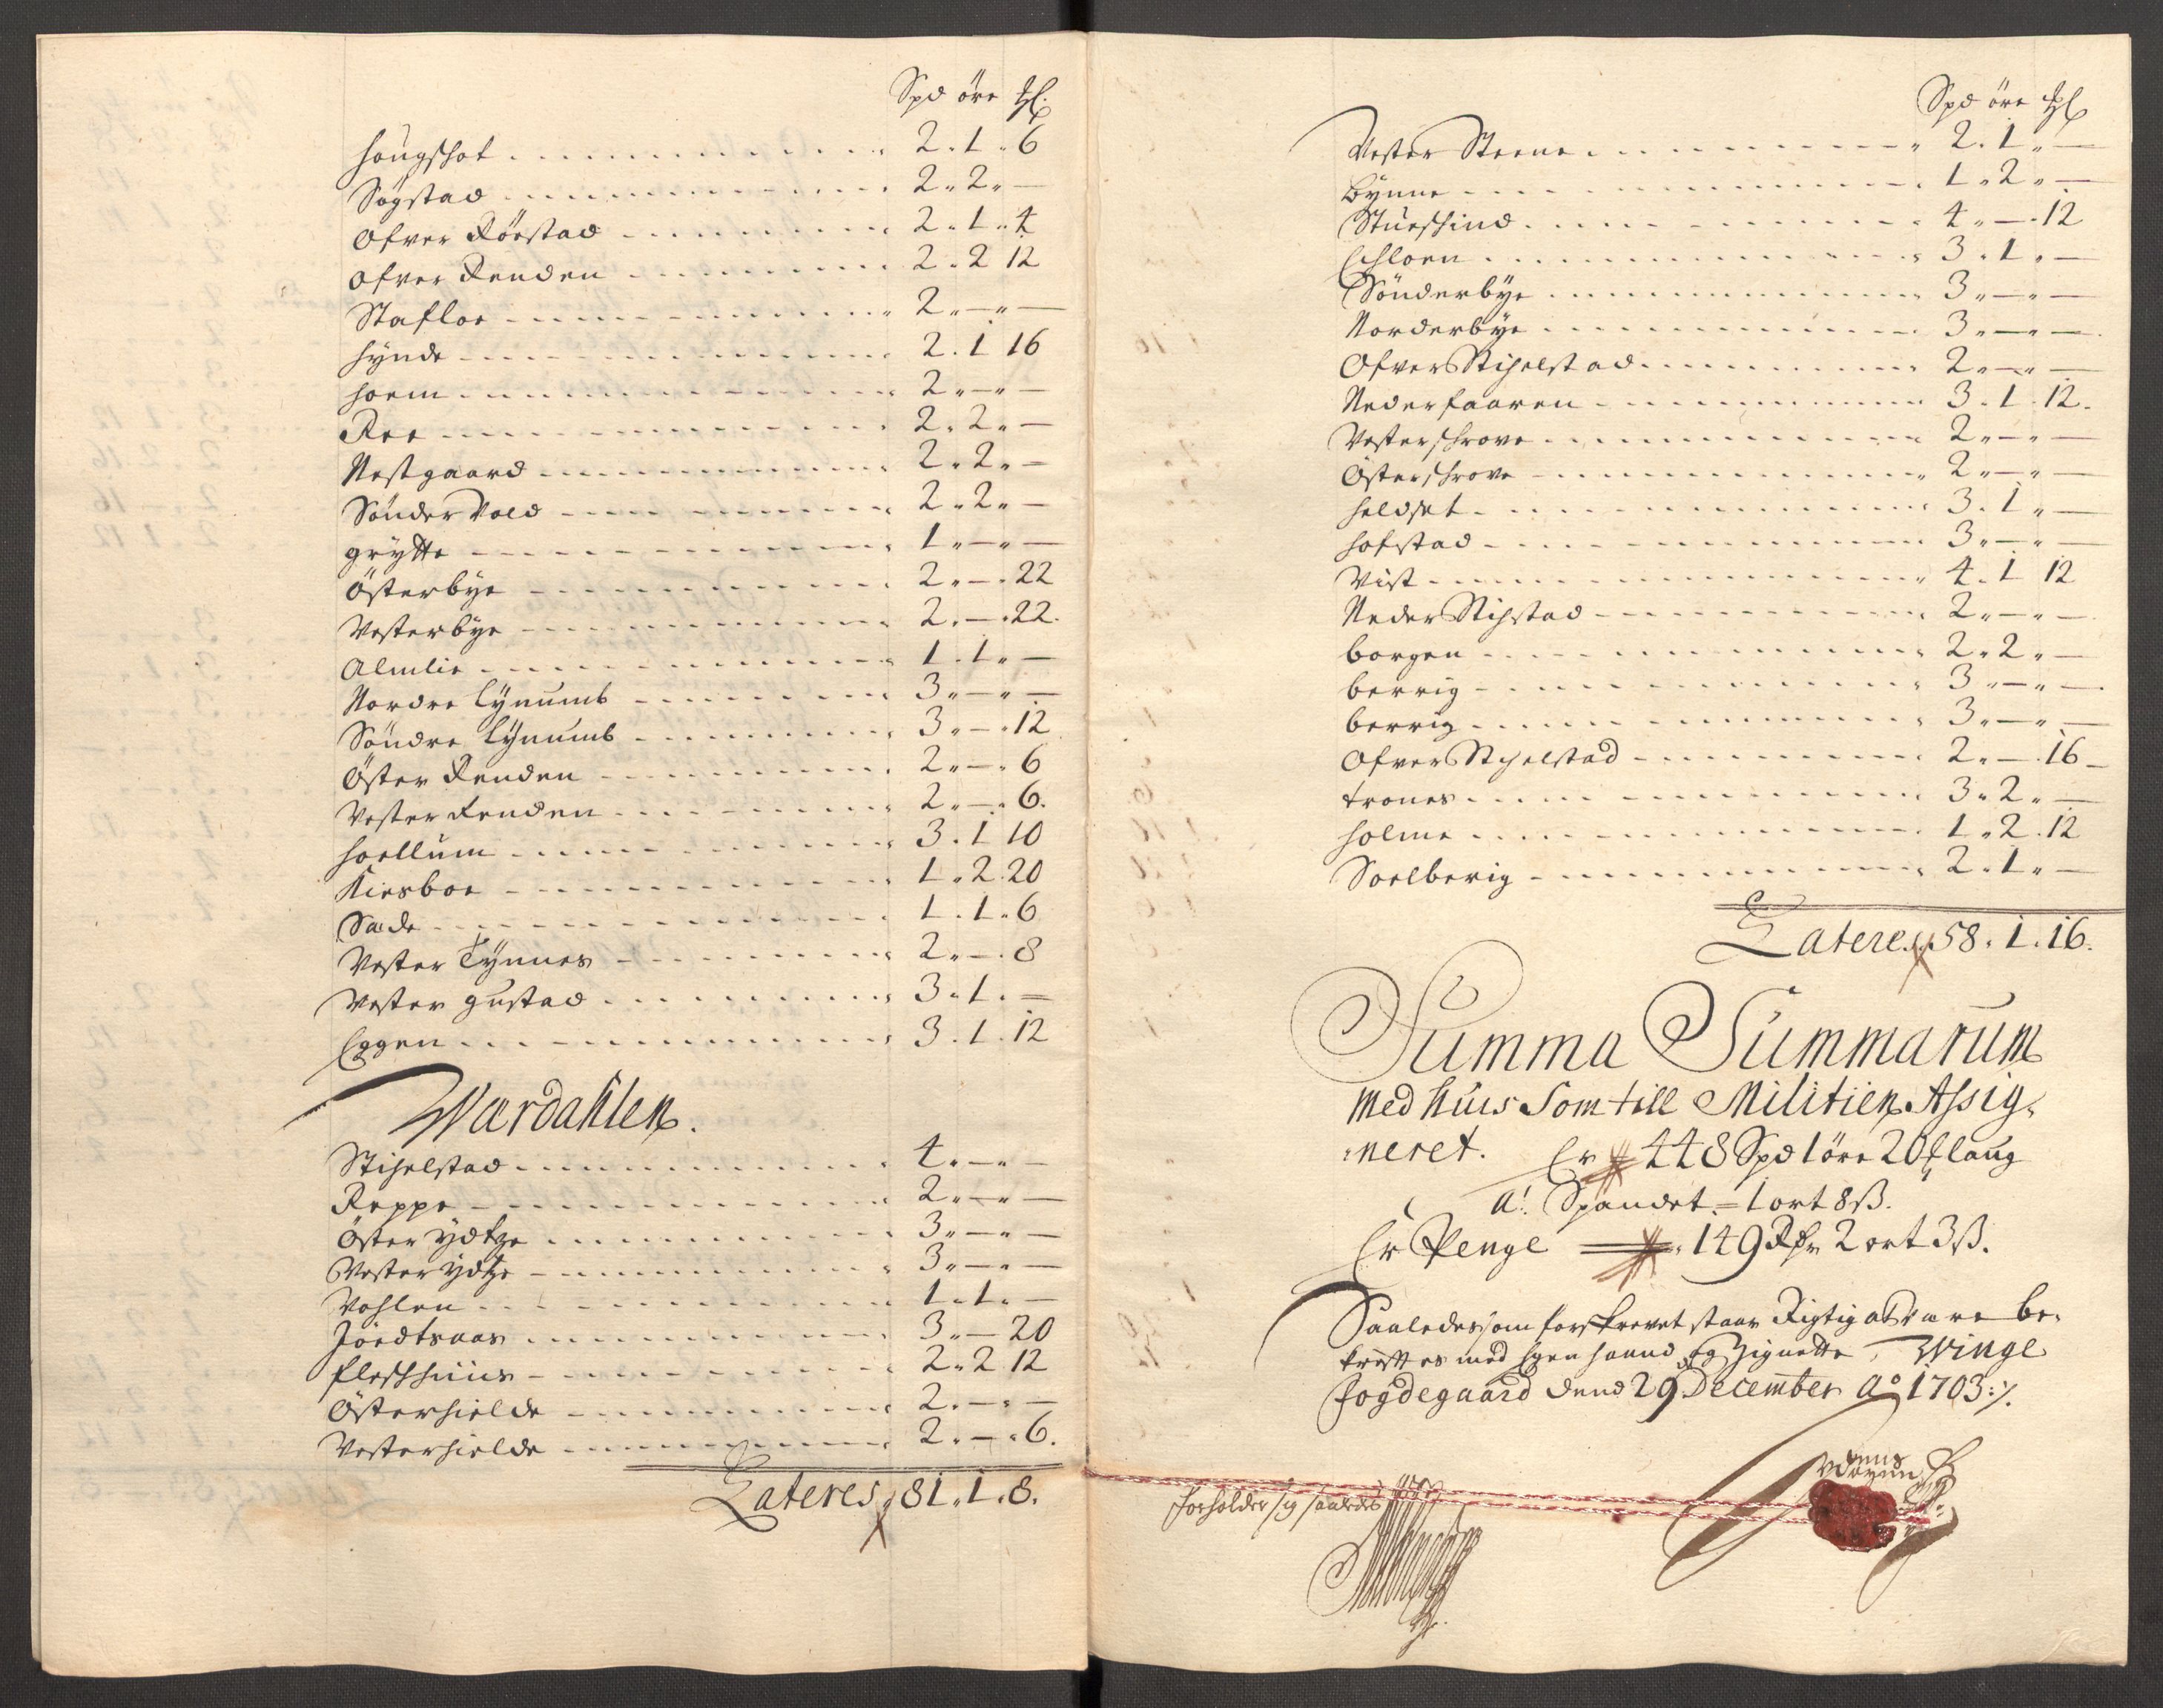 Spd øre
Haugshat 2 . 1 . 6
Søgstad 2 . 2 . —
Ofver Rørstad 2 . 1 . 4
Ofver Renden 2 . 2 12
Stafloe 2 . — . —
Hynde 2 . 1 16
Hoem 2 . — . —
Roe 2 . 2 . —
Nestgaard 2 . 2 . —
Sønder Vold 2 . 2 . —
grytte 1 . — . —
Østerbye 2 . — . 22
Vesterbye 2 . — . 22.
Almlie 1 . 1 . —
Nordre Lynumb 3 . — . —
Søndre Lynumb 3 . — . 12
Øster Renden 2 . — . 6
Vester Renden 2 . — . 6.
Hoellum 3 . 1 10
Kirsboe 1 . 2 . 20
Sæde 1 . 1 . 6
Vester Tynnes 2 . — . 8
Vester gustad 3 . 1 . —
Eggen 3 . 1 . 12
Wærdahlen.
Stihelstad 4 . — . —
Reppe 2 . — . —
Øster ydtze 3 . — . —
Vester ydtze 3 . — . —
Vohlen 1 . 1 . —
Jøedtraas 3 . — 20
fleskhuus 2 . 2 12
Østerhielde 2 . — . —
Vesterhielde 2 . — . 6.
Lateres 81 . 1 . 8.
Spd øre
Vester Steene 2 . 1 . —
Bynne 1 . 2 . —
Stueshind 4 . — . 12
Echloen 3 . 1 . —
Sønderbye 3 . — . —
Norderbye 3 . — . —
Ofver Stihelstad 2 . — . —
Nederhaaren 3 . 1 . 12.
Vesterschrove 2 . — . —
Østerschrove 2 . — . —
Heldset 3 . 1 . —
Hofstad 3 . — . —
Vist 4 . 1 12
Neder Stihstad 2 . — . —
borgen 2 . 2 . —
berrig 3 . — . —
berrig 3 . — . —
Ofver Stihelstad 2 . — . 16
trones 3 . 2 . —
Holme 1 . 2 . 12
Soelberig 2 . 1 . —
Lateres 58 . 1 . 16.
Summa Summarum
Med huis Som till Militien Assig-
neret. Er 448 Spd 1 øre 20 laug
a! Spandet = 1 ort 8 ß.
Er Penge 149 Rdr 2 ort 3 ß.
Saaledes som forskrevet staar Rigtig at være be-
kreftes med Egen Haand og Zignette, Winge
fogdegaard dend 29 December Ao 1703 :/.
forholder sig saaledes